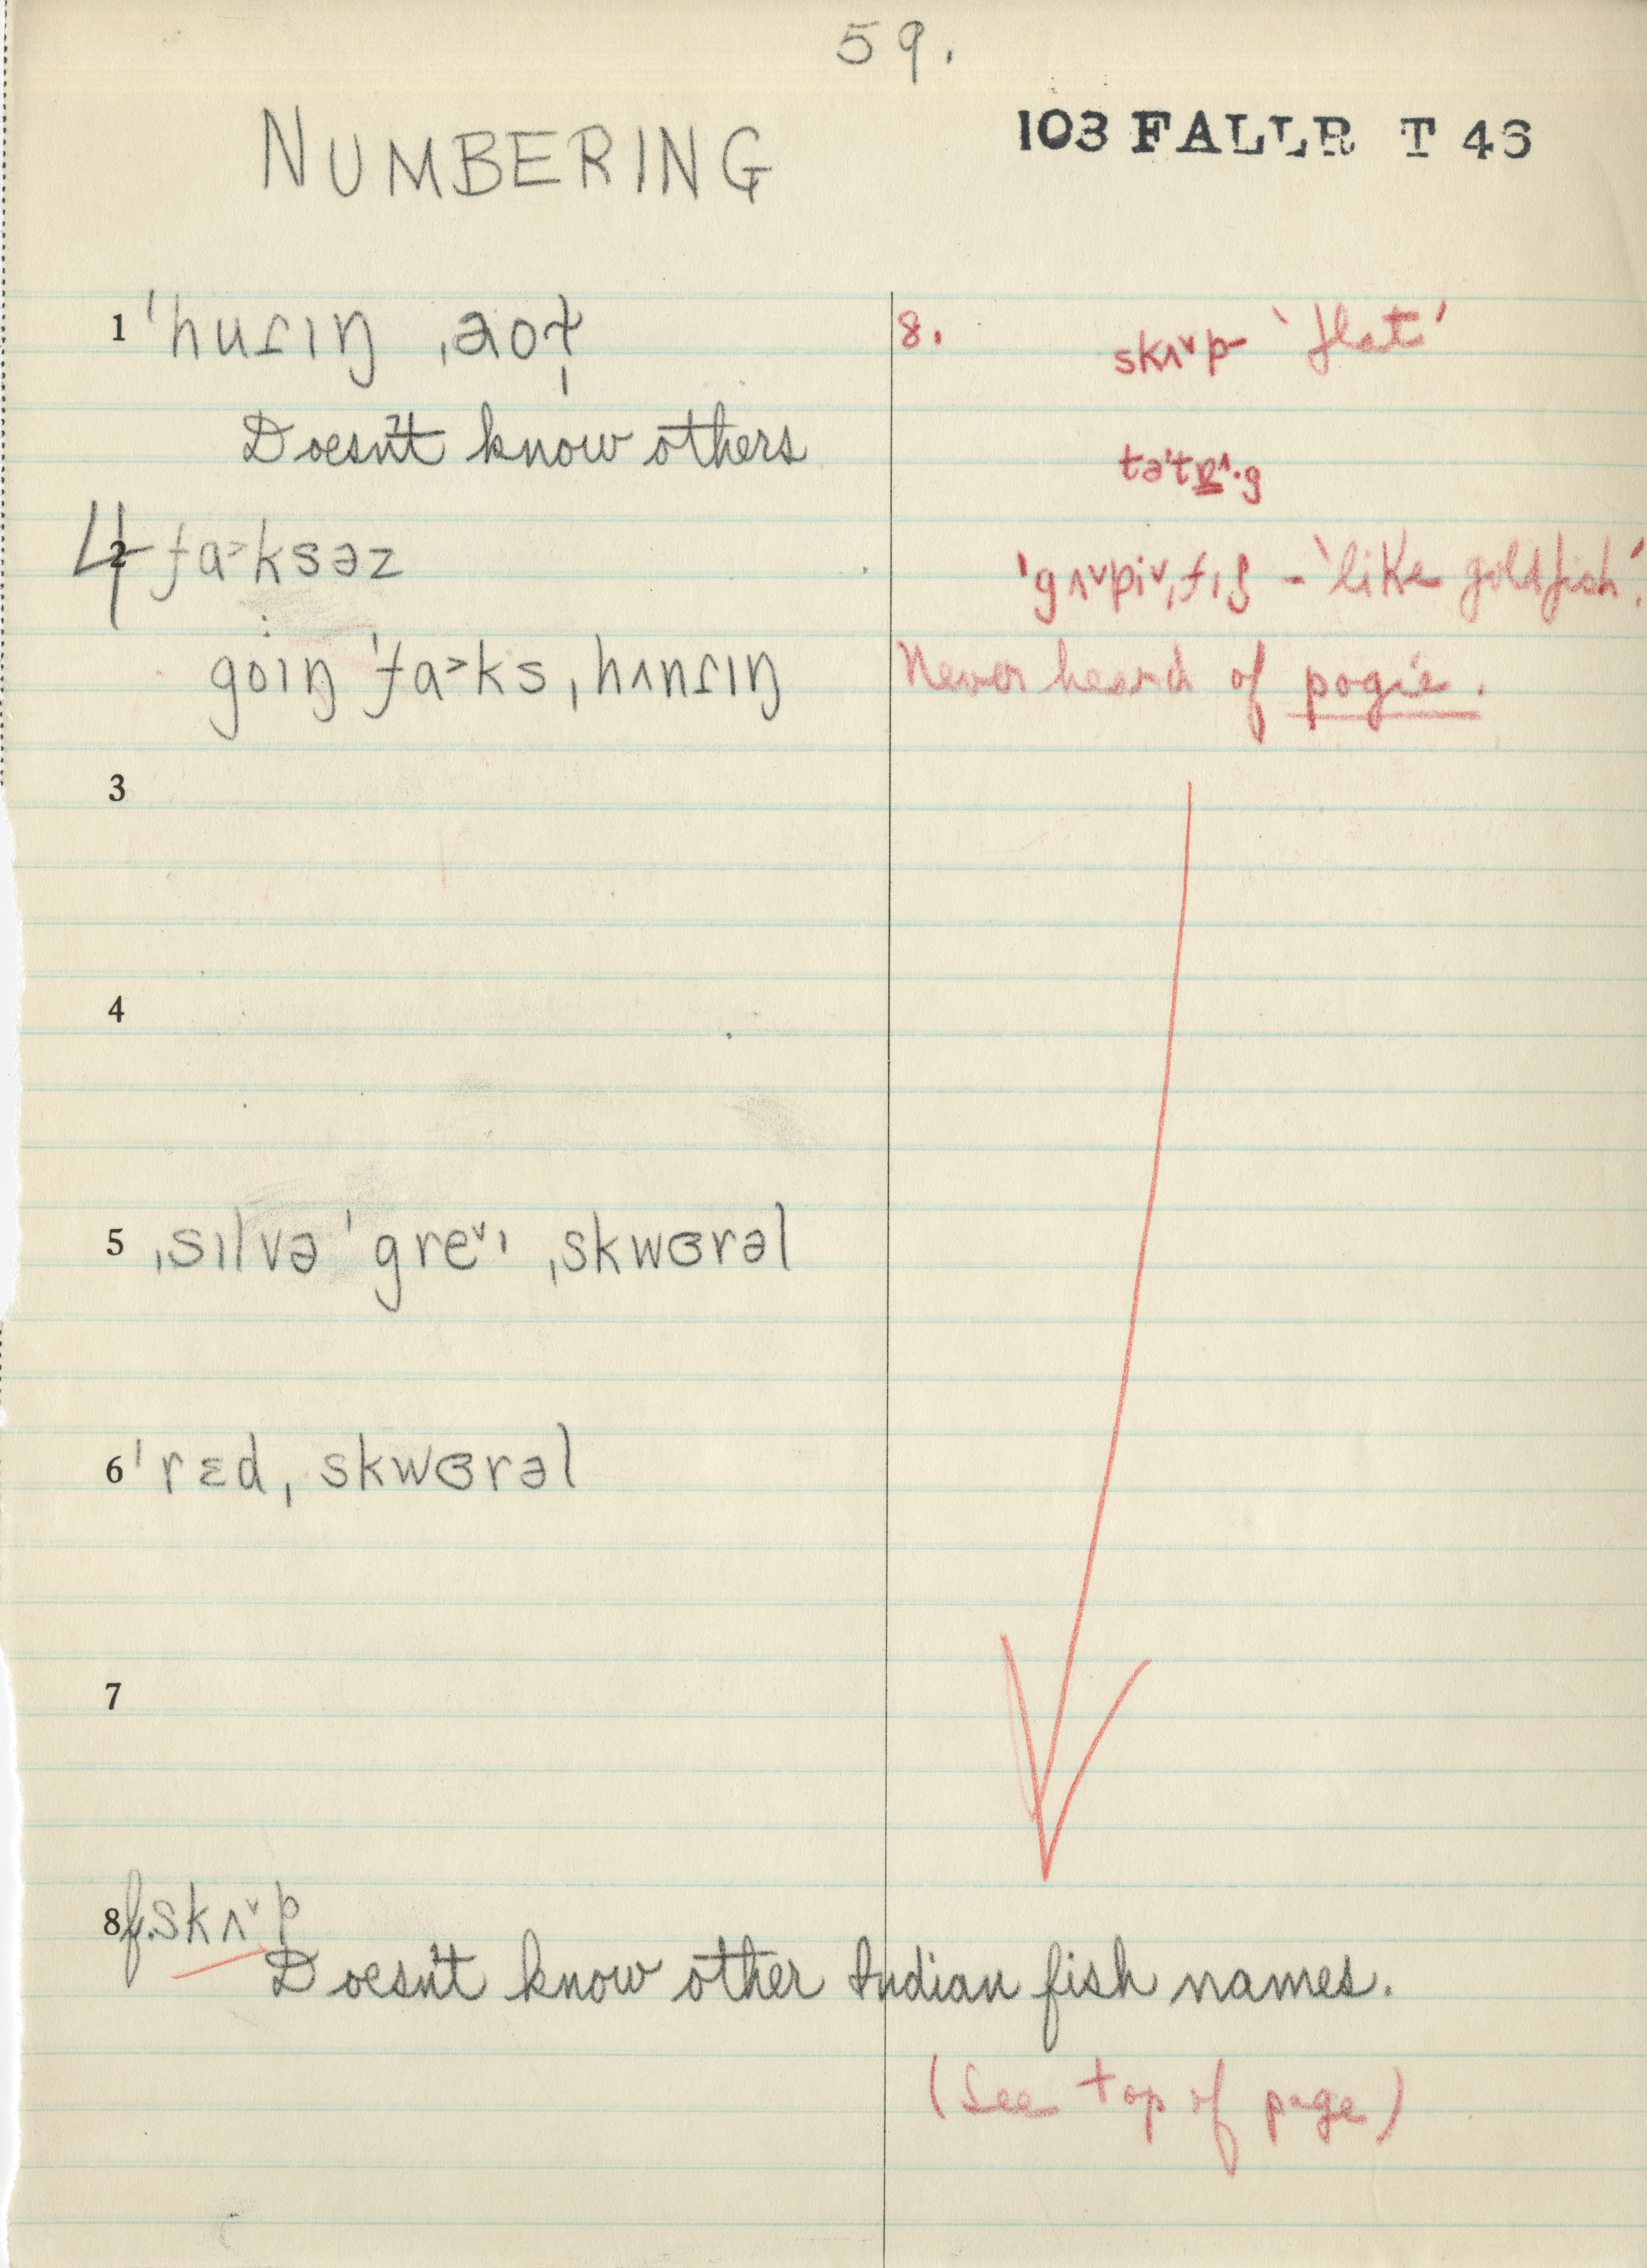 59.
NUMBERING
103 FALLR T 46
1 ˈhuɾɪŋ ˌaʊɫ̩
Doesn't know others
4 2 fa˃ksəz
goɪŋ ˈfa˃ks ˌhʌnɾɪŋ
3
4
5 ˌsɪlvə ˈgreˇɪ ˌskwɞrəl
6 ˈrɛd ˌskwɞrəl
7
8 f. skʌˇp
Doesn't know other Indian fish names.
8. skʌˇp- 'flat'
təˈtɒ˄·g
ˈgʌˇpiˇˌfɪʃ - 'like goldfish'.
Never heard of pogie.
(See top of page)